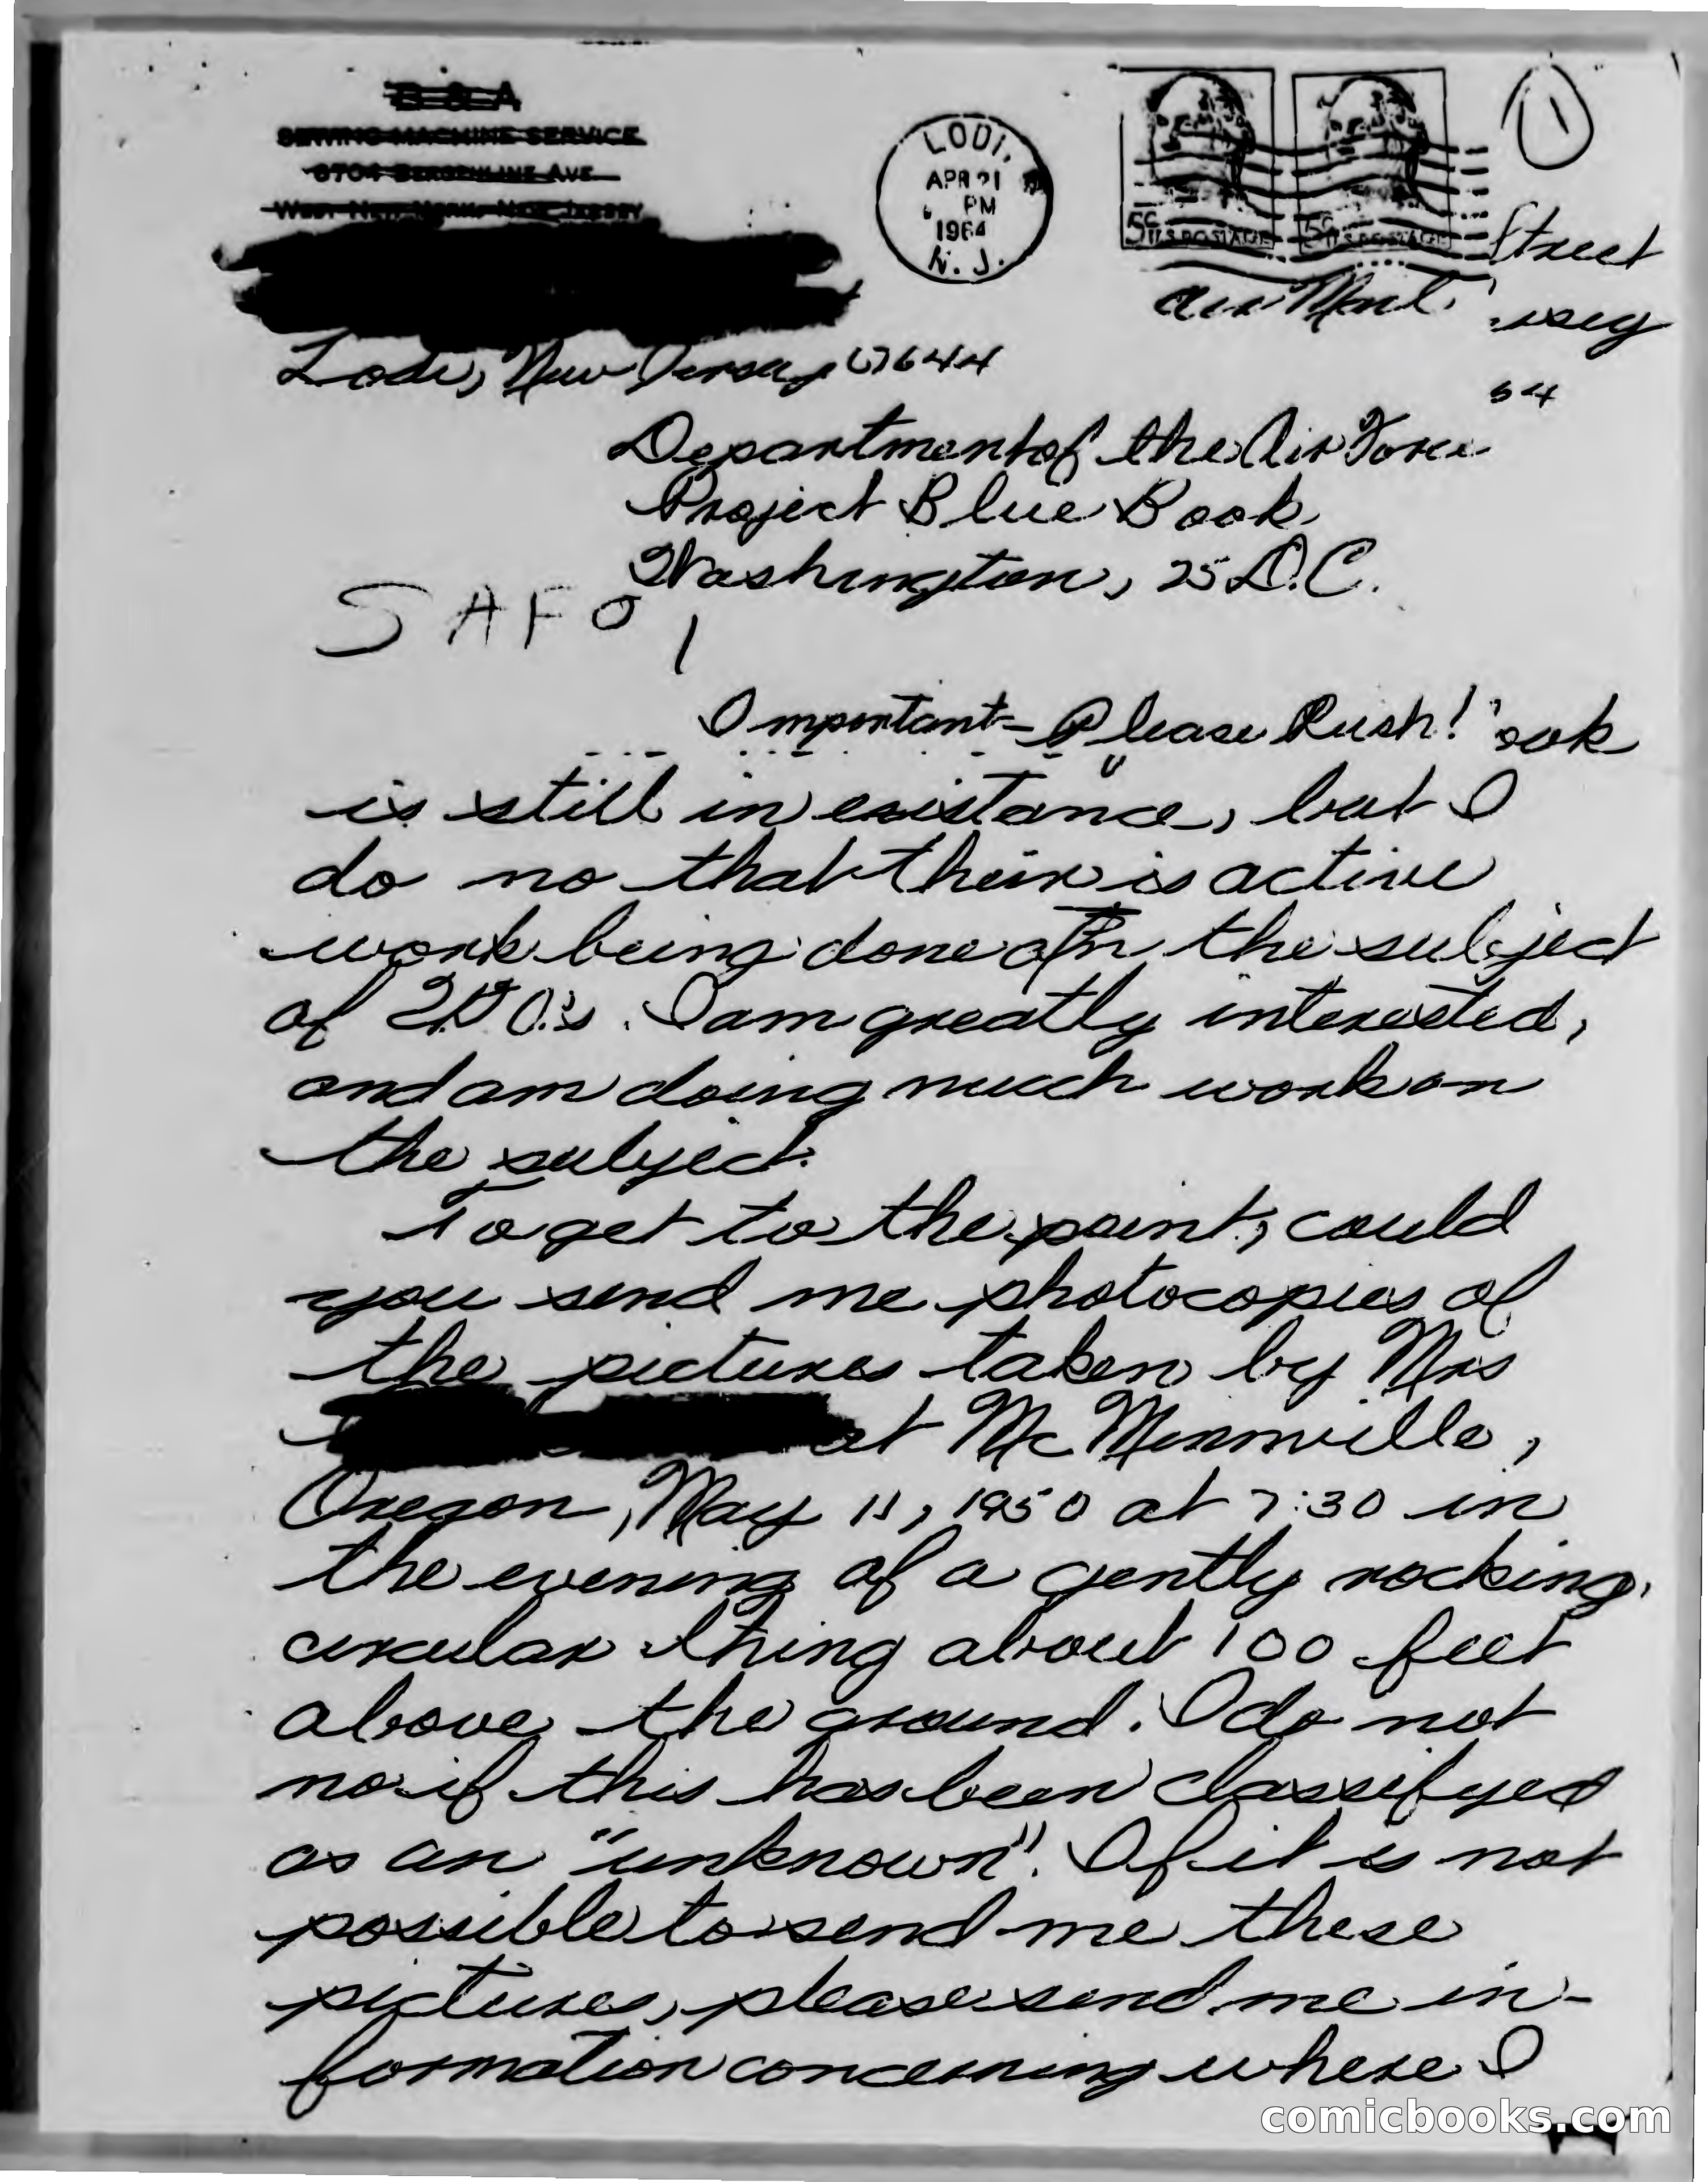 B & A
SEWING MACHINE SERVICE
6704 BERGENLINE AVE
WEST NEW YORK, NEW JERSEY
LODI,
APR 21
PM
1964
N. J.
5c U.S. POSTAGE
5c U.S. POSTAGE
1
Street
Air Mail
Lodi, New Jersey 07644
64
Department of the Air Force
Project Blue Book
Washington, 25 D.C.
SAFOI
Important - Please Rush!
ook
is still in existance, but I
do no that their is active
work being done on the subject
of U.F.O.'s. I am greatly interested,
and am doing much work on
the subject.
To get to the point, could
you send me photocopies of
the pictures taken by Mrs
at McMinnville,
Oregon, May 11, 1950 at 7:30 in
the evening of a gently rocking,
circular thing about 100 feet
above the ground. I do not
no if this has been classifyed
as an "unknown". If it is not
possible to send me these
pictures, please send me in-
formation concerning where I
comicbooks.com